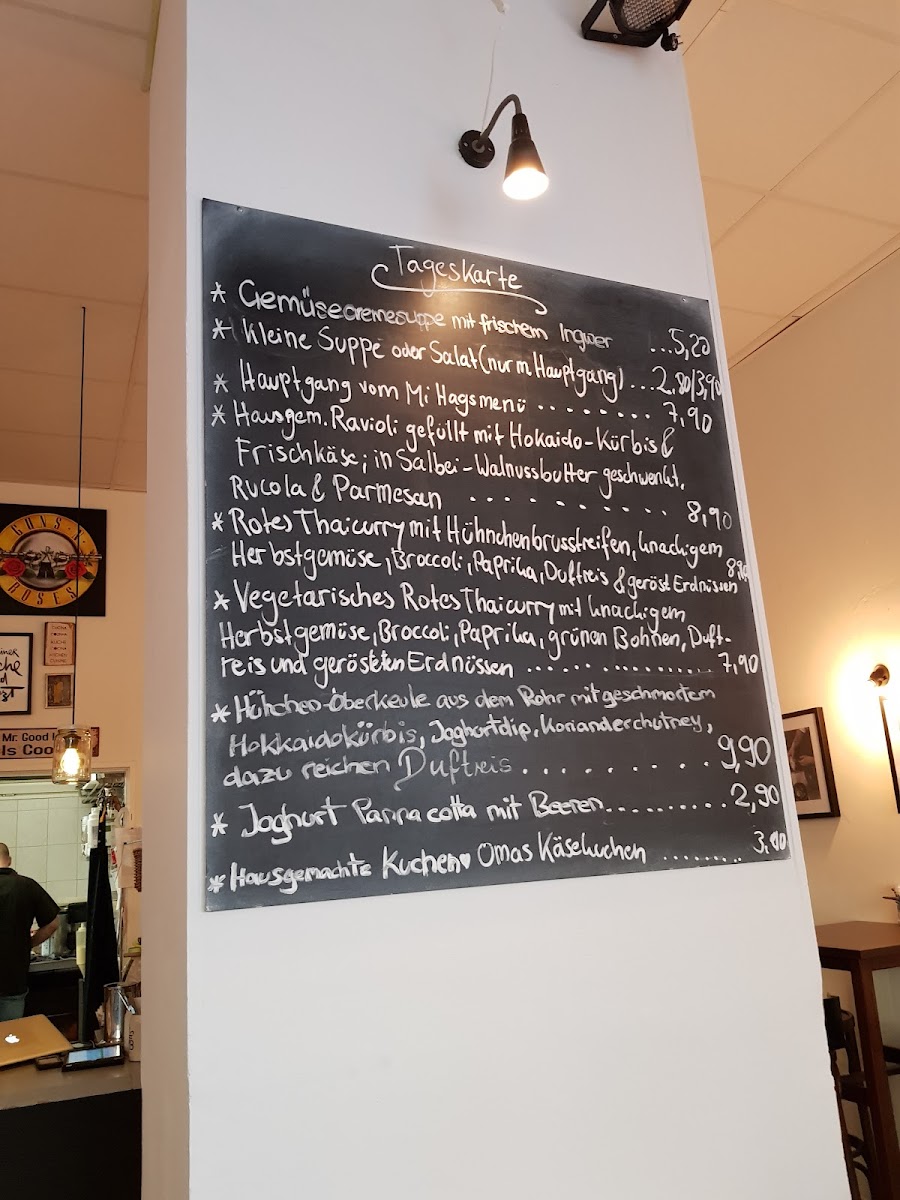 Tageskarte
* Gemüsecremesuppe mit frischem Ingwer ...5,20
* Kleine Suppe oder Salat (nur m. Hauptgang) ...2.80/3,90
* Hauptgang vom Mi Hagsmenü ........ 7,90
* Hausgem. Ravioli gefüllt mit Hokaido-Kürbis &
Frischkäse; in Salbei-Walnussbutter geschwenkt,
Rucola & Parmesan ....... 8,90
* Rotes Thaicurry mit Hühnchenbrusstreifen, knackigem
Herbstgemüse, Broccoli, Paprika, Duftreis & geröst Erdnüssen
* Vegetarisches Rotes Thaicurry mit knackigem
Herbstgemüse, Broccoli, Paprika, grünen Bohnen, Duft-
reis und gerösteten Erdnüssen ............... 7,90
* Hühchen-Oberkeule aus dem Rohr mit geschmortem
Hokkaidokürbis, Joghurtdip, Korianderchutney,
dazu reichen Duftreis ......... 9,90
* Joghurt Panna cotta mit Beeren.......... 2,90
* Hausgemachte Kuchen♥ Omas Käsekuchen ........
GUNS N'
ROSES
Mr. Good
Is Coo